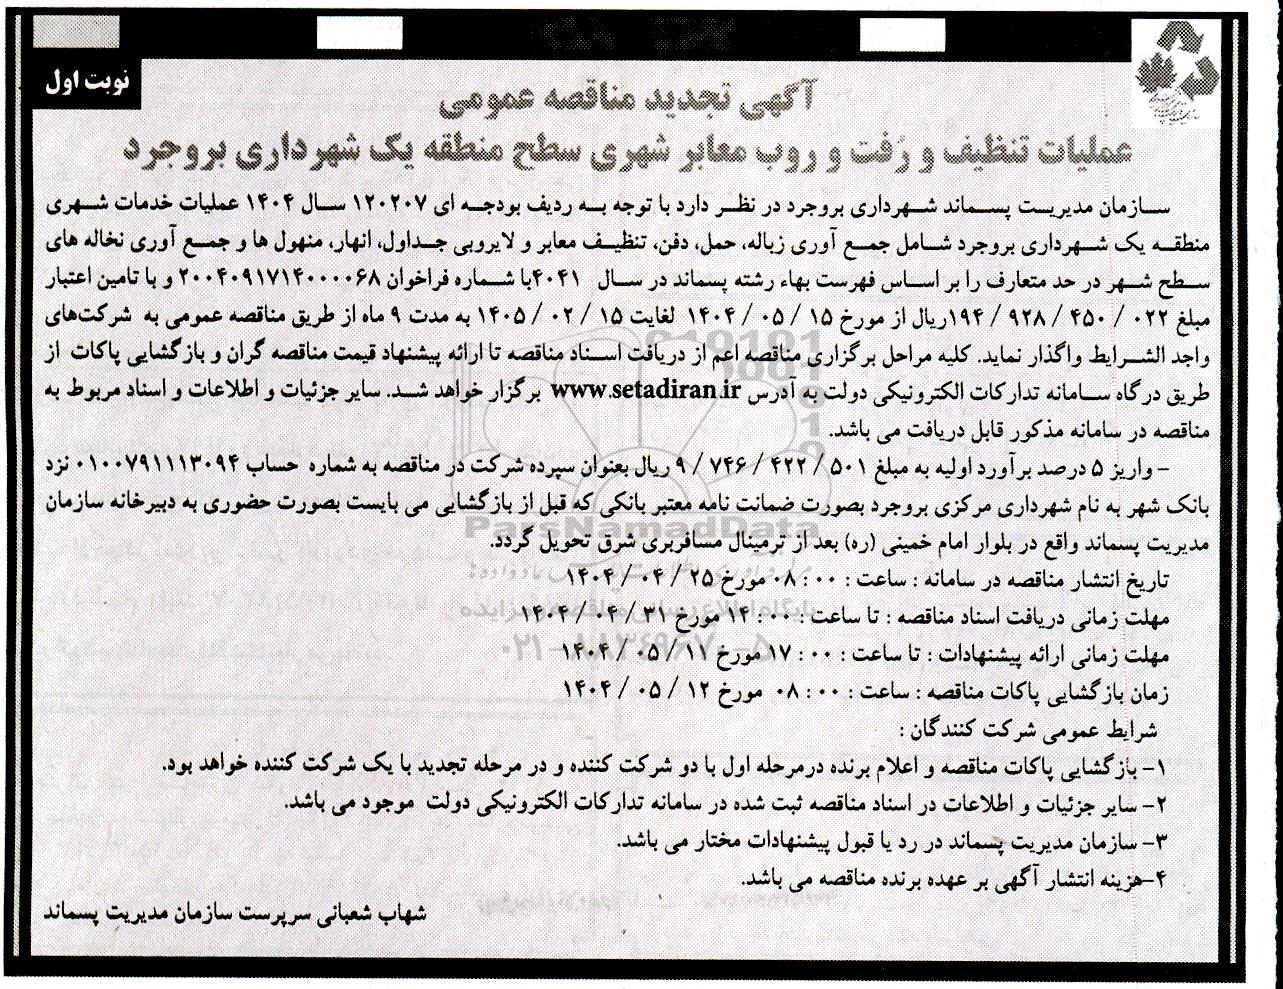 نوبت اول
آگهی تجدید مناقصه عمومی
عملیات تنظیف و رُفت و روب معابر شهری سطح منطقه یک شهرداری بروجرد
سازمان مدیریت پسماند شهرداری بروجرد در نظر دارد با توجه به ردیف بودجه ای ۱۲۰۲۰۷ سال ۱۴۰۴ عملیات خدمات شهری
منطقه یک شهرداری بروجرد شامل جمع آوری زباله، حمل، دفن، تنظیف معابر و لایروبی جداول، انهار، منهول ها و جمع آوری نخاله های
سطح شهر در حد متعارف را بر اساس فهرست بهاء رشته پسماند در سال ۴۰۴۱با شماره فراخوان ۲۰۰۴۰۹۱۷۱۴۰۰۰۰۶۸ و با تامین اعتبار
مبلغ ۰۲۲ / ۴۵۰ / ۹۲۸ / ۱۹۴ریال از مورخ ۱۵ / ۰۵ / ۱۴۰۴ لغایت ۱۵ / ۰۲ / ۱۴۰۵ به مدت ۹ ماه از طریق مناقصه عمومی به شرکت‌های
واجد الشرایط واگذار نماید. کلیه مراحل برگزاری مناقصه اعم از دریافت اسناد مناقصه تا ارائه پیشنهاد قیمت مناقصه گران و بازگشایی پاکات از
طریق درگاه سامانه تدارکات الکترونیکی دولت به آدرس www.setadiran.ir برگزار خواهد شد. سایر جزئیات و اطلاعات و اسناد مربوط به
مناقصه در سامانه مذکور قابل دریافت می باشد.
– واریز ۵ درصد برآورد اولیه به مبلغ ۵۰۱ / ۴۲۲ / ۷۴۶ / ۹ ریال بعنوان سپرده شرکت در مناقصه به شماره حساب ۰۱۰۰۷۹۱۱۱۳۰۹۴ نزد
بانک شهر به نام شهرداری مرکزی بروجرد بصورت ضمانت نامه معتبر بانکی که قبل از بازگشایی می بایست بصورت حضوری به دبیرخانه سازمان
مدیریت پسماند واقع در بلوار امام خمینی (ره) بعد از ترمینال مسافربری شرق تحویل گردد.
ParsNamadData
تاریخ انتشار مناقصه در سامانه : ساعت : ۰۰ : ۰۸ مورخ ۲۵ / ۰۴ / ۱۴۰۴
مهلت زمانی دریافت اسناد مناقصه : تا ساعت : ۰۰ : ۱۴ مورخ ۳۱ / ۰۴ / ۱۴۰۴
مهلت زمانی ارائه پیشنهادات : تا ساعت : ۰۰ : ۱۷ مورخ ۱۱ / ۰۵ / ۱۴۰۴
۰۲۱-۸۸۳۴۹۶۷۰-۵
زمان بازگشایی پاکات مناقصه : ساعت : ۰۰ : ۰۸ مورخ ۱۲ / ۰۵ / ۱۴۰۴
شرایط عمومی شرکت کنندگان :
۱- بازگشایی پاکات مناقصه و اعلام برنده درمرحله اول با دو شرکت کننده و در مرحله تجدید با یک شرکت کننده خواهد بود.
۲- سایر جزئیات و اطلاعات در اسناد مناقصه ثبت شده در سامانه تدارکات الکترونیکی دولت موجود می باشد.
۳- سازمان مدیریت پسماند در رد یا قبول پیشنهادات مختار می باشد.
۴-هزینه انتشار آگهی بر عهده برنده مناقصه می باشد.
شهاب شعبانی سرپرست سازمان مدیریت پسماند